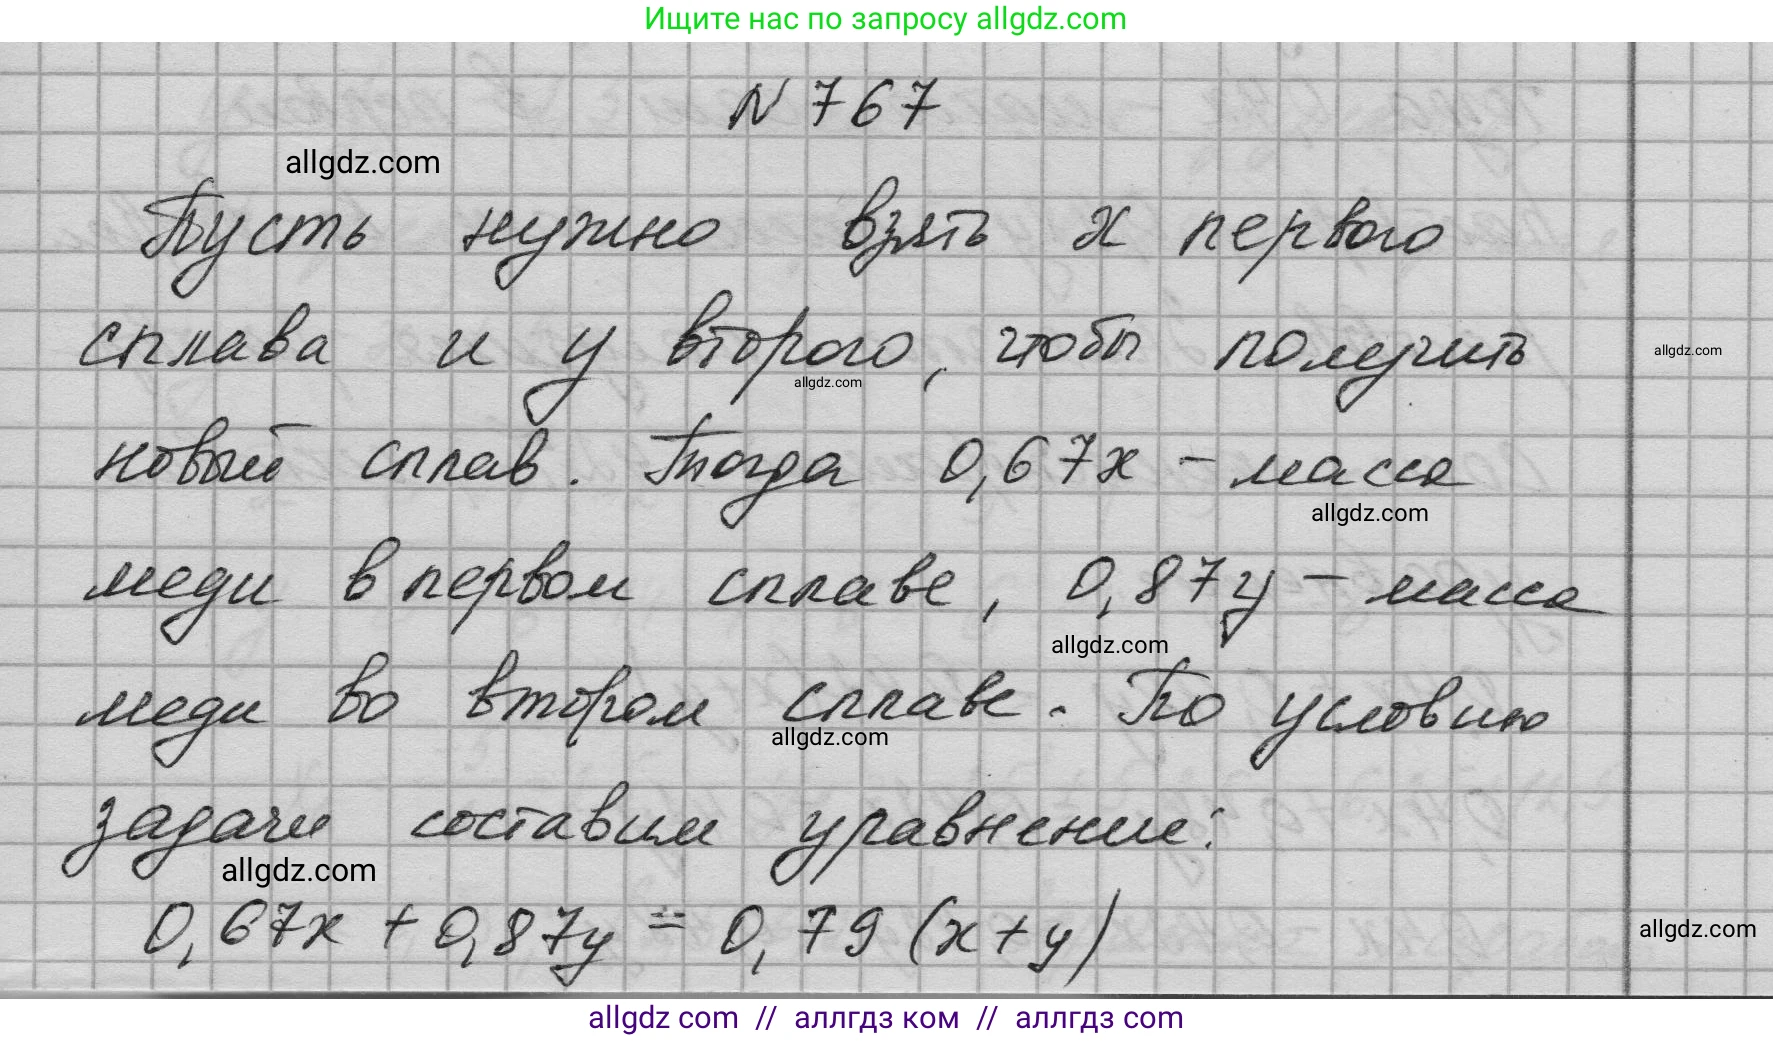 Ищите нас по запросу allgdz.com
N 767
allgdz.com
Пусть нужно взять x первого
сплава и y второго, чтобы получить
allgdz.com
allgdz.com
новый сплав. Тогда 0,67x - масса
allgdz.com
меди в первом сплаве, 0,87y - масса
allgdz.com
меди во втором сплаве. По условию
allgdz.com
задачи составим уравнение:
allgdz.com
0,67x + 0,87y = 0,79 (x+y)
allgdz.com
allgdz com // аллгдз ком // аллгдз com